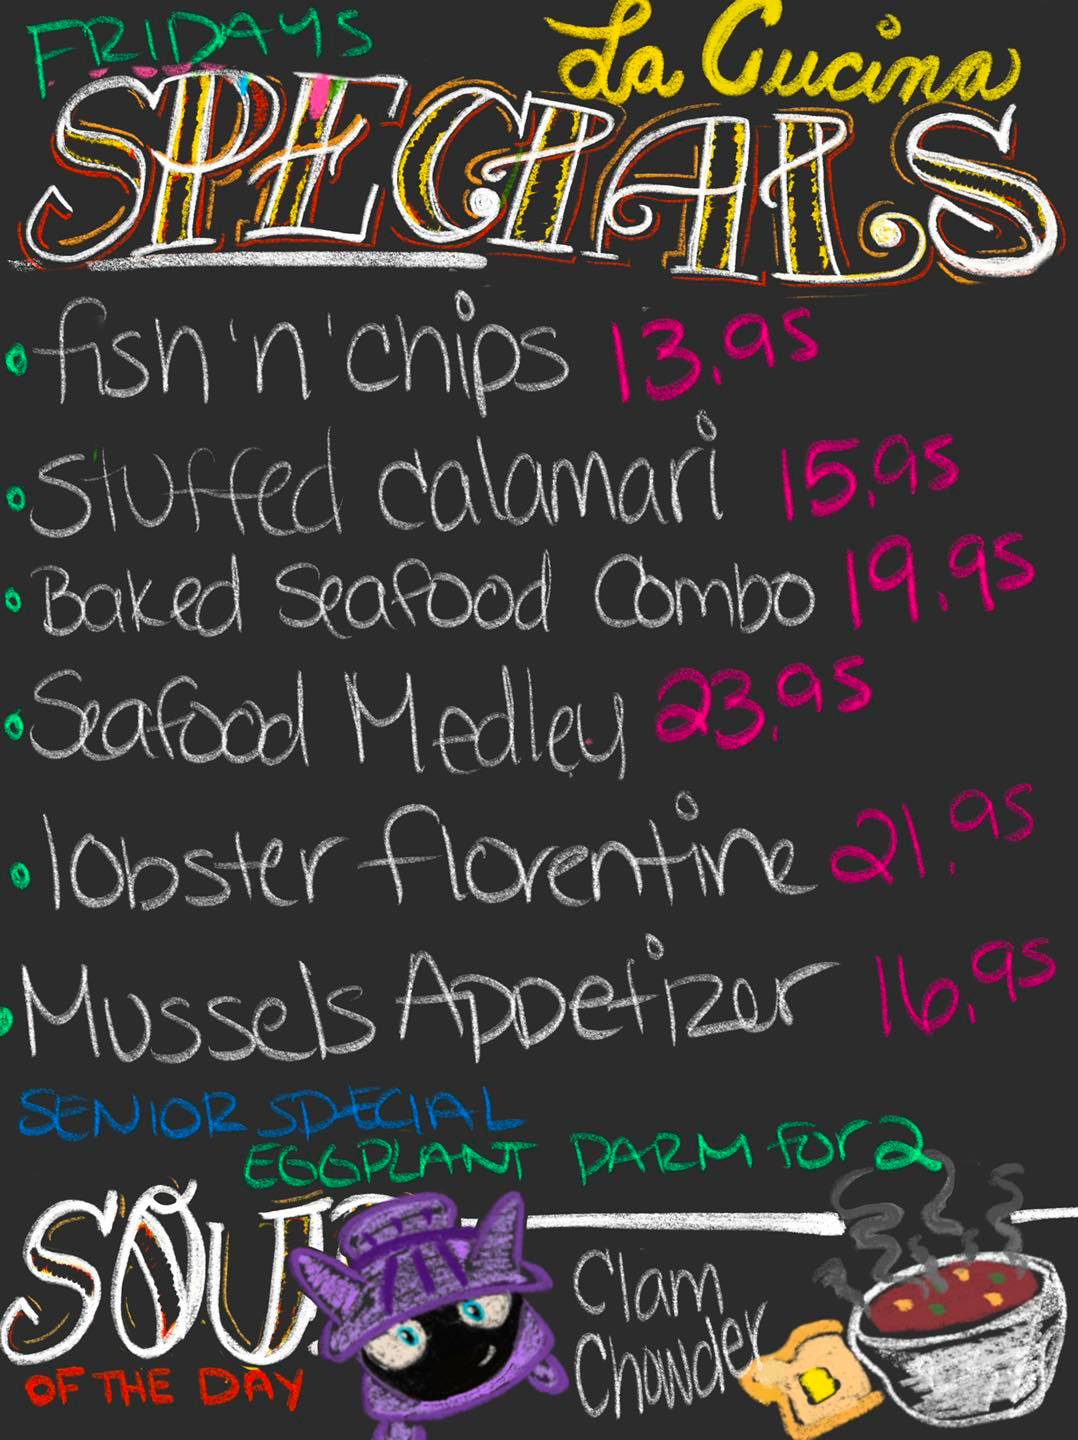 FRIDAYS
La Cucina
SPECIALS
fish 'n' chips 13.95
Stuffed calamari 15.95
Baked Seafood Combo 19.95
Seafood Medley 23.95
lobster florentine 21.95
Mussels Appetizer 16.95
SENIOR SPECIAL
EGGPLANT PARM for 2
SOUP
OF THE DAY
Clam
Chowder